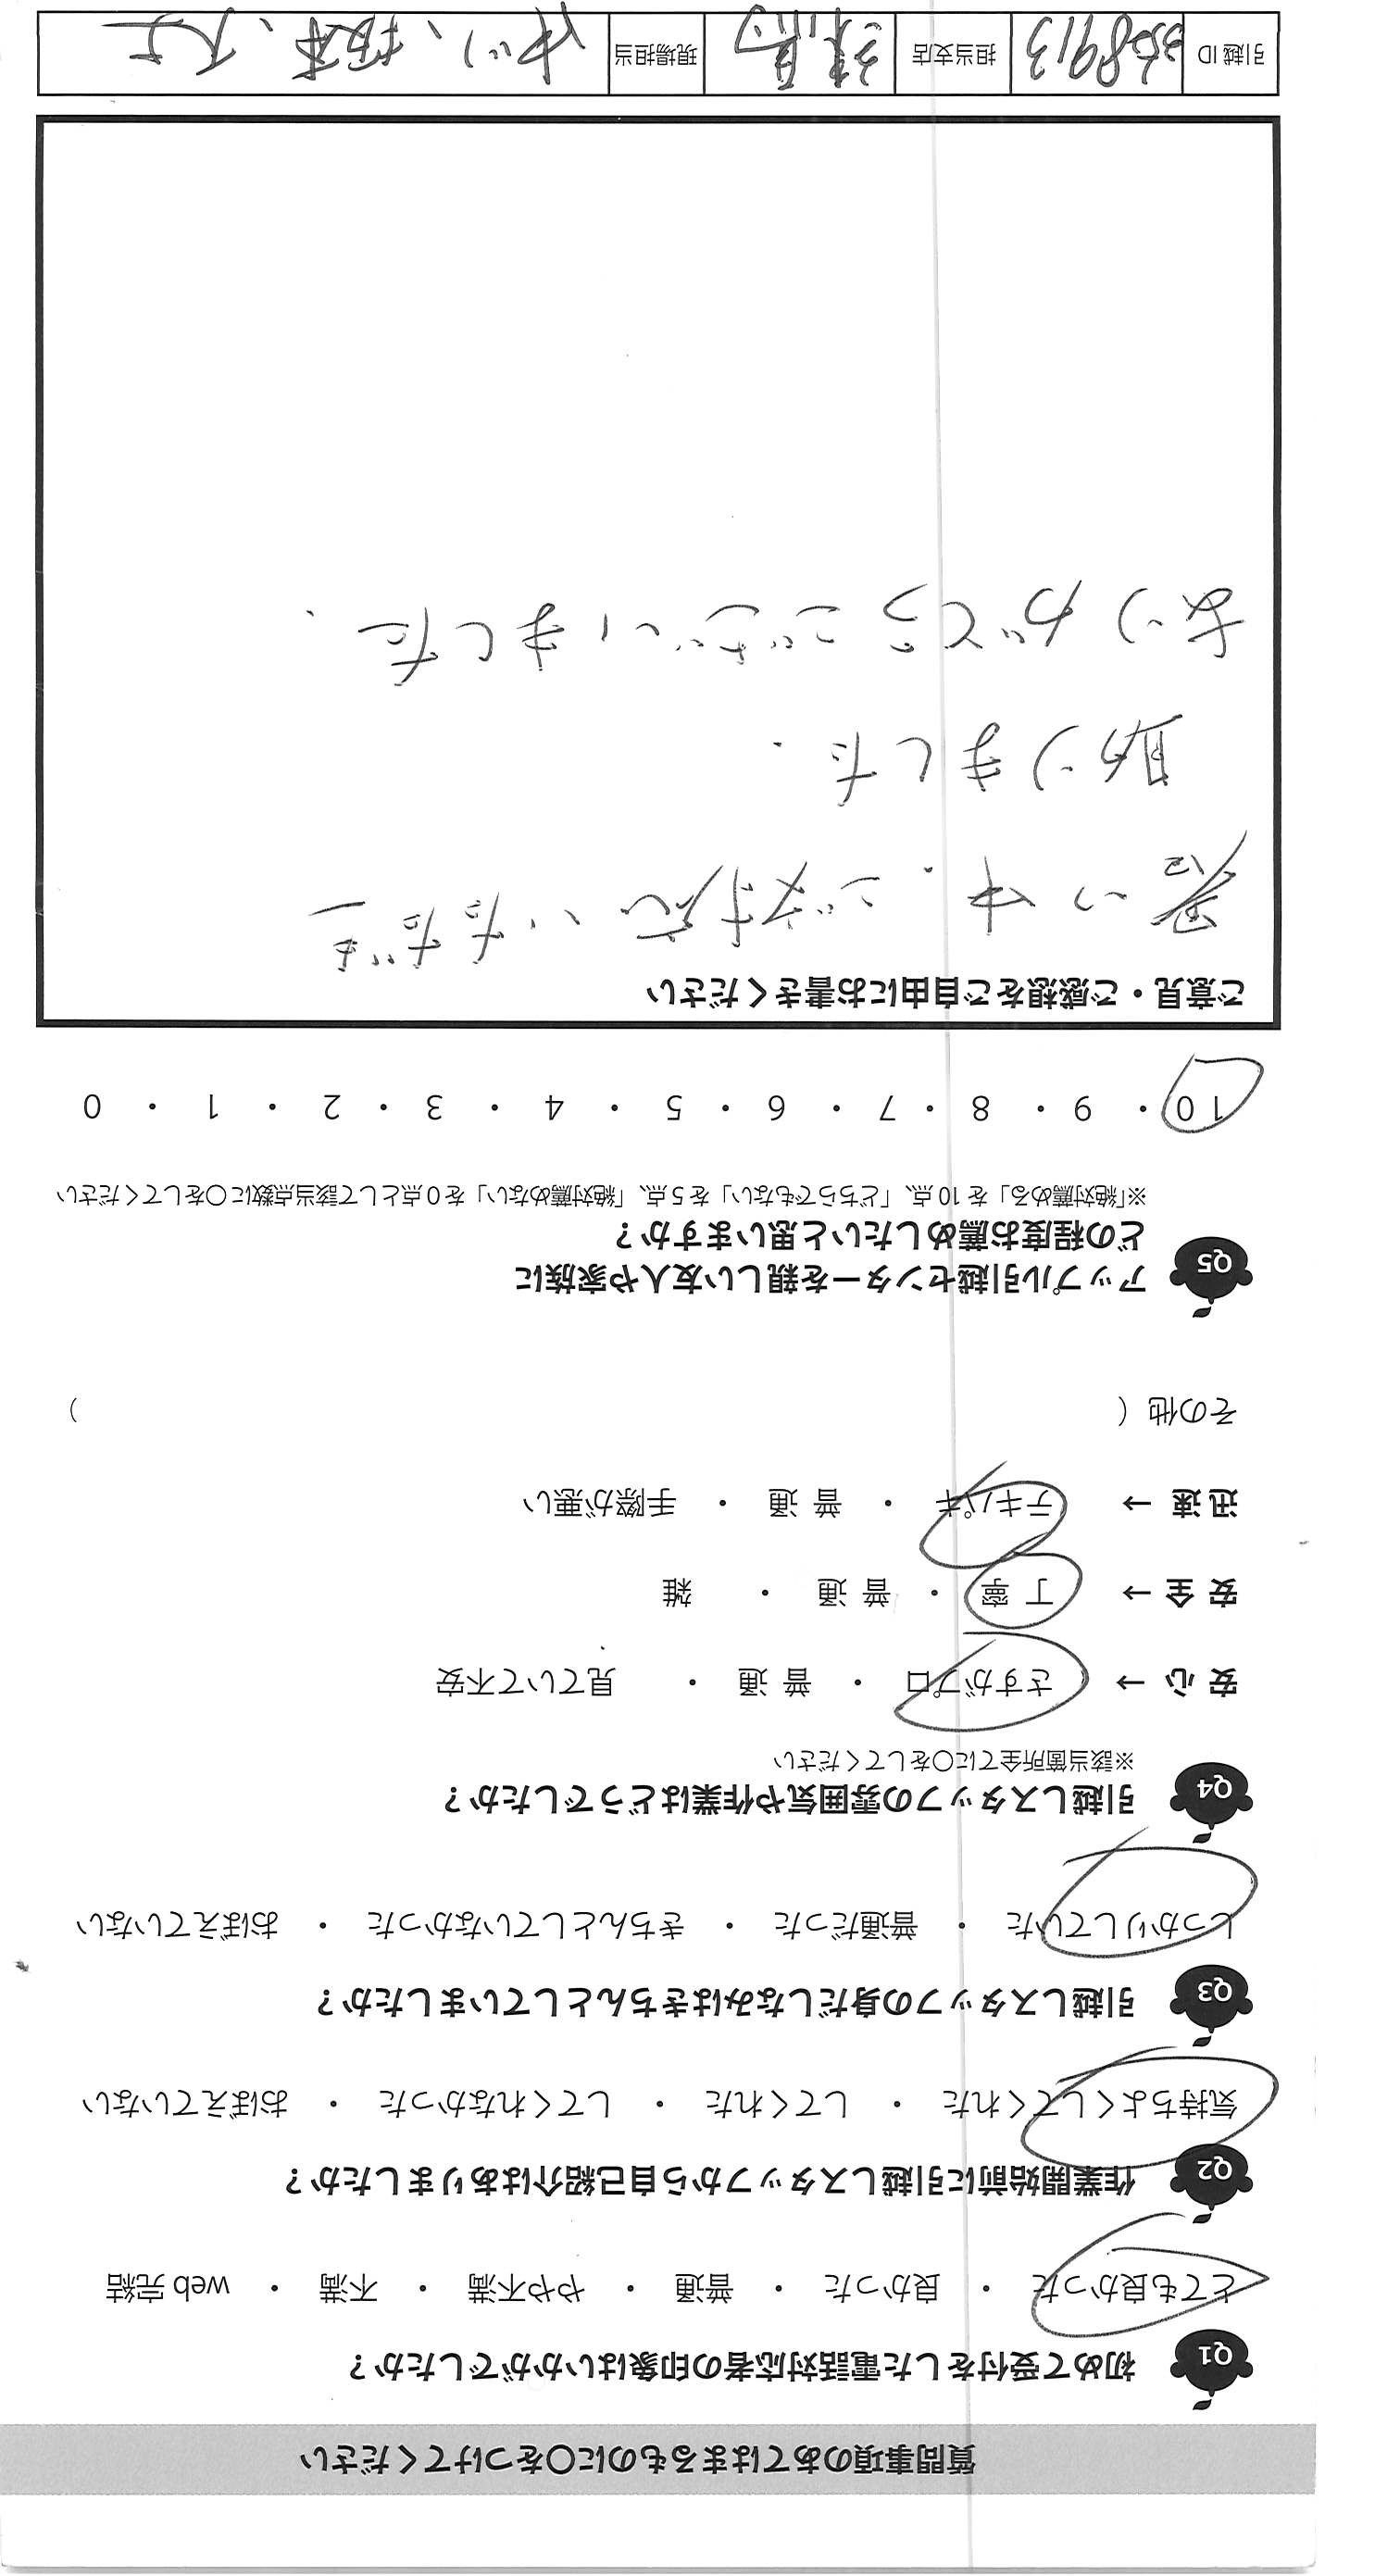 質問事項のあてはまるものに○をつけてください
Q1 初めて受付をした電話対応者の印象はいかがでしたか?
とても良かった ・ 良かった ・ 普通 ・ やや不満 ・ 不満 ・ web 完結
Q2 作業開始前に引越しスタッフから自己紹介はありましたか?
気持ちよくしてくれた ・ してくれた ・ してくれなかった ・ おぼえていない
Q3 引越しスタッフの身だしなみはきちんとしていましたか?
しっかりしていた ・ 普通だった ・ きちんとしていなかった ・ おぼえていない
Q4 引越しスタッフの雰囲気や作業はどうでしたか?
※該当箇所全てに○をしてください
安 心 → さすがプロ ・ 普 通 ・ 見ていて不安
安 全 → 丁 寧 ・ 普 通 ・ 雑
迅 速 → テキパキ ・ 普 通 ・ 手際が悪い
その他 ( )
Q5 アップル引越センターを親しい友人や家族に
どの程度お薦めしたいと思いますか?
※「絶対薦める」を 10 点、「どちらでもない」を 5 点、「絶対薦めない」を 0 点として該当点数に○をしてください
10 ・ 9 ・ 8 ・ 7 ・ 6 ・ 5 ・ 4 ・ 3 ・ 2 ・ 1 ・ 0
ご意見・ご感想をご自由にお書きください
暑い中、ご対応いただき
助りました.
ありがとうございました.
引越 ID 3568913 担当支店 練馬 現場担当